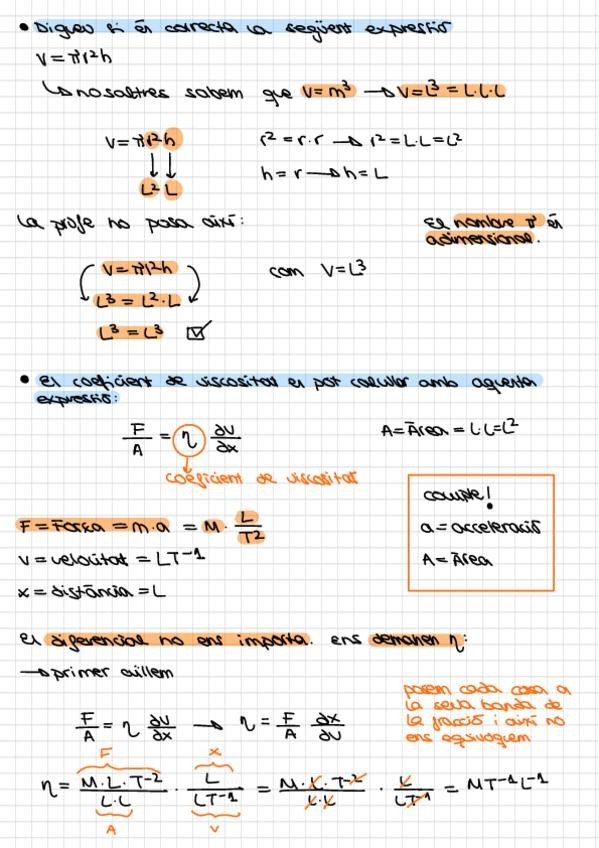 • Digueu si és correcta la següent expressió
V = πr²h
↳ nosaltres sabem que V = m³ → V = L³ = L·L·L
V = πr²h r² = r·r → r² = L·L = L²
↓ ↓
L² L h = r → h = L
La profe ho posa així: El nombre π és
adimensional.
V = πr²h com V = L³
L³ = L²·L
L³ = L³ ☑
• El coeficient de viscositat es pot calcular amb aquesta
expressió:
F/A = η ∂v/∂x A = Àrea = L·L = L²
coeficient de viscositat
compte!
a = acceleració
A = Àrea
F = Força = m·a = M · L/T²
v = velocitat = LT⁻¹
x = distància = L
El diferencial no ens importa. ens demanen η:
→ primer aïllem
posem cada cosa a
la seva banda de
la fracció i així no
ens equivoquem
F/A = η ∂v/∂x → η = F/A ∂x/∂v
F x
η = M·L·T⁻²/L·L · L/LT⁻¹ = M·L·T⁻²/L·L · L/LT⁻¹ = MT⁻¹L⁻¹
A v